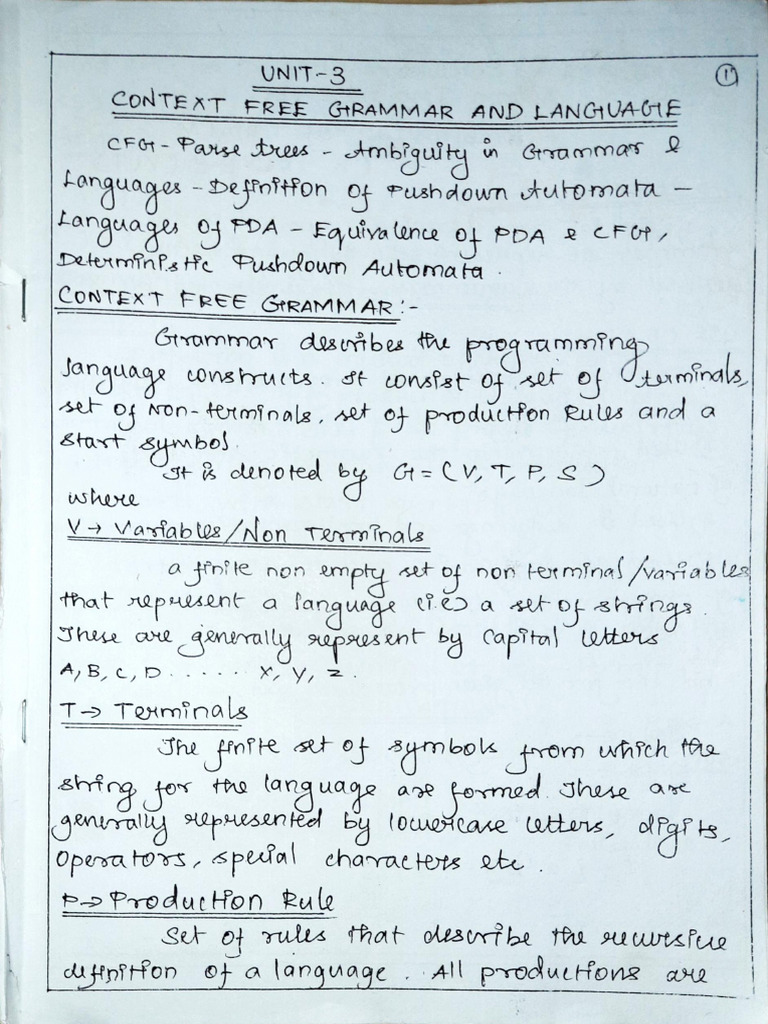 UNIT-3
①
CONTEXT FREE GRAMMAR AND LANGUAGE
CFG - Parse trees - Ambiguity in Grammar &
Languages - Definition of Pushdown Automata -
Languages of PDA - Equivalence of PDA & CFG,
Deterministic Pushdown Automata.
CONTEXT FREE GRAMMAR:-
Grammar describes the programming
language constructs. It consist of set of terminals,
set of Non-terminals, set of production Rules and a
start symbol.
It is denoted by G = (V, T, P, S)
where
V → Variables/Non Terminals
a finite non empty set of non terminal/variables
that represent a language (i.e) a set of strings.
These are generally represent by capital letters
A, B, C, D ...... X, Y, Z.
T → Terminals
The finite set of symbols from which the
string for the language are formed. These are
generally represented by lowercase letters, digits,
operators, special characters etc.
P → Production Rule
Set of rules that describe the recursive
definition of a language. All productions are